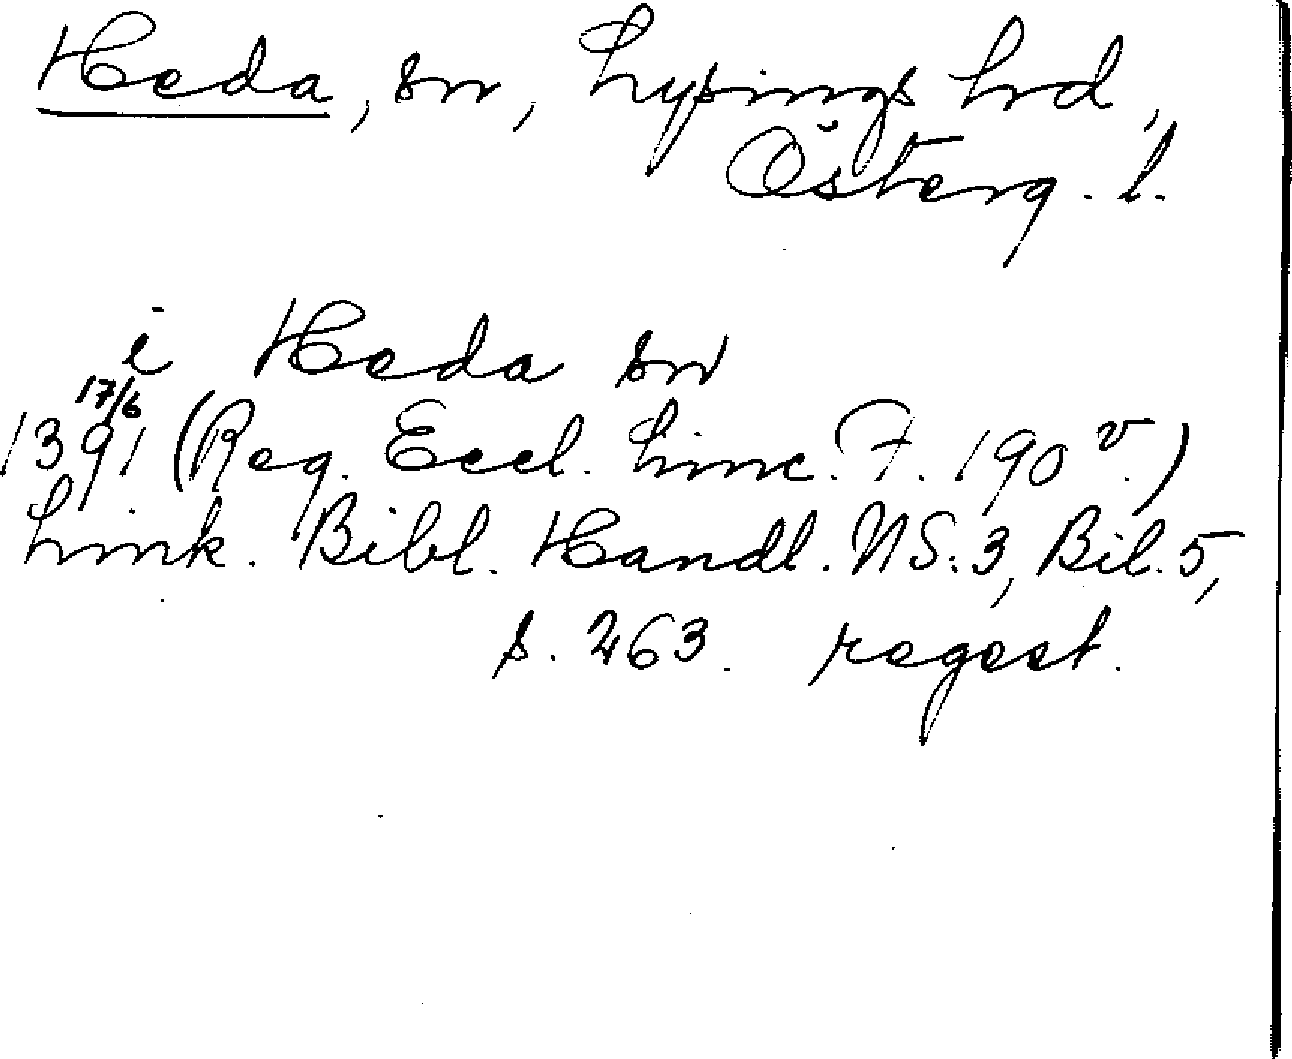 Heda, sn, Lysings hrd,
Österg. l.
i Heda sn
17/6
1391 (Reg. Eccl. Linc. F. 190 v.)
Link. Bibl. Handl. NS. 3, Bil. 5,
s. 263. regest.